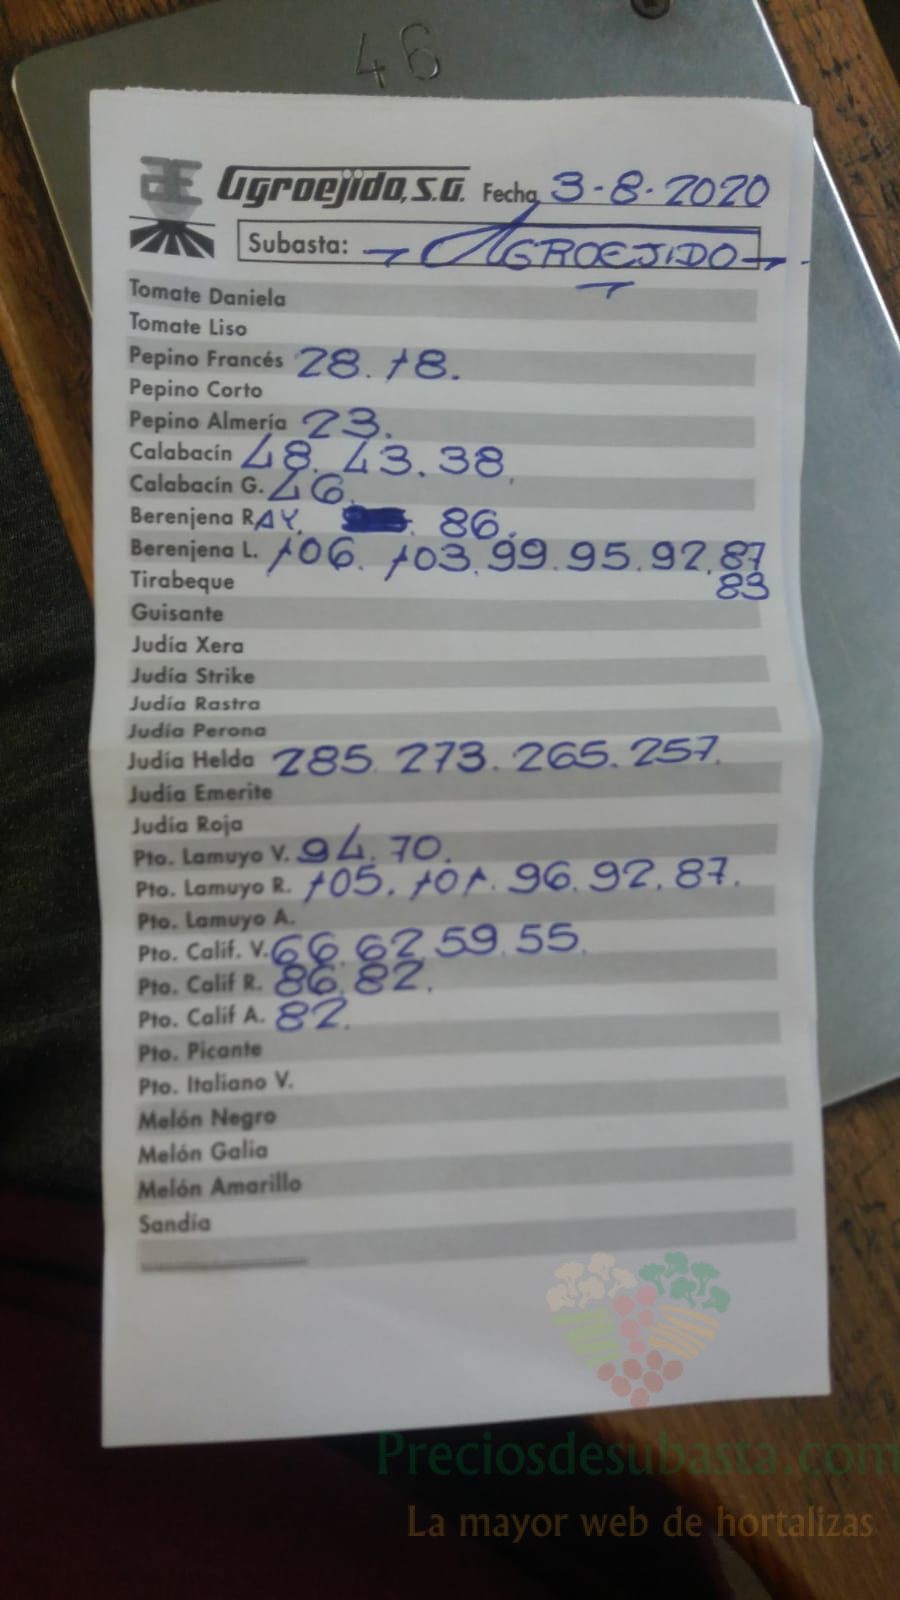 46
Agroejido, S.A. Fecha 3-8-2020
Subasta: AGROEJIDO
Tomate Daniela
Tomate Liso
Pepino Francés 28. 18.
Pepino Corto
Pepino Almería 23.
Calabacín 48. 43. 38.
Calabacín G. 46.
Berenjena RAY. 86.
Berenjena L. 106. 103. 99. 95. 92. 87
83
Tirabeque
Guisante
Judía Xera
Judía Strike
Judía Rastra
Judía Perona
Judía Helda 285. 273. 265. 257.
Judía Emerite
Judía Roja
Pto. Lamuyo V. 94. 70.
Pto. Lamuyo R. 105. 101. 96. 92. 87.
Pto. Lamuyo A.
Pto. Calif. V. 66. 62. 59. 55.
Pto. Calif R. 86. 82.
Pto. Calif A. 82.
Pto. Picante
Pto. Italiano V.
Melón Negro
Melón Galia
Melón Amarillo
Sandía
Preciosdesubasta.com
La mayor web de hortalizas